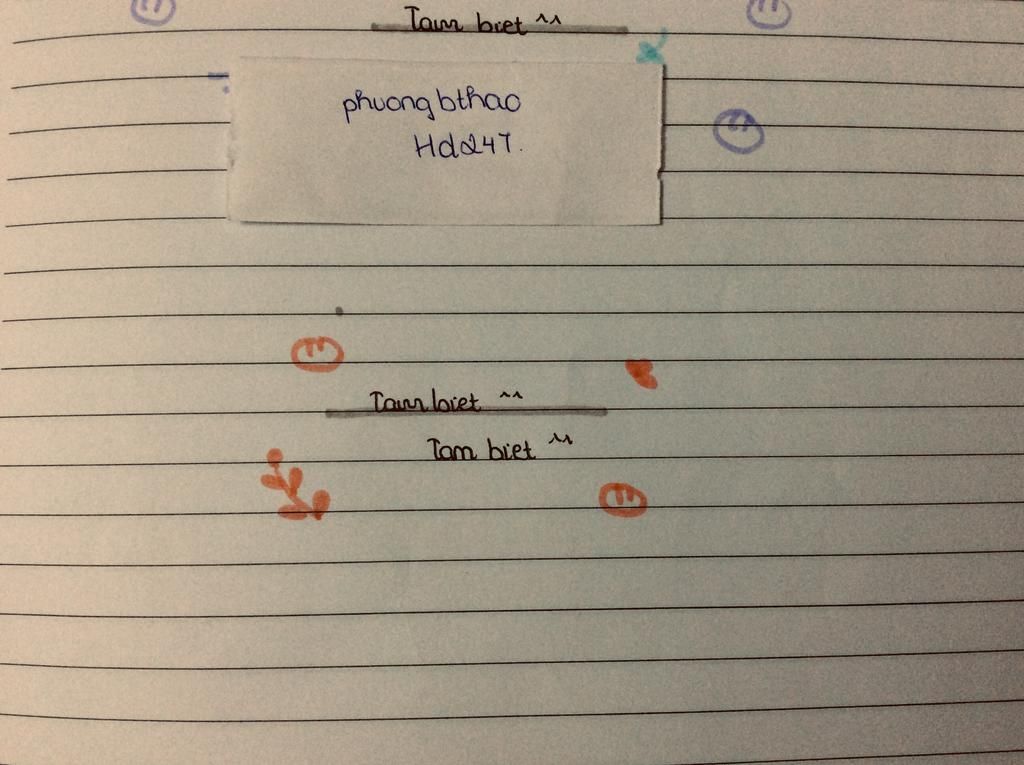 Tam biet ^^
phuongbthao
Hd247.
Tam biet ^^
Tam biet ^^